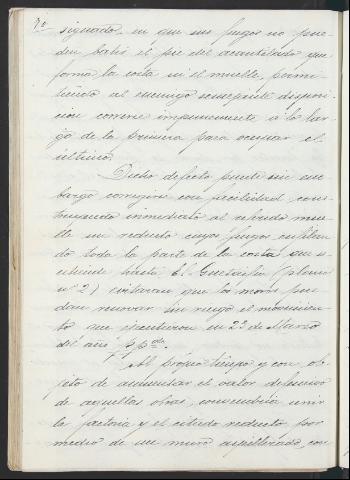 70
signado, en que sus fuegos no pue-
den batir el pie del acantilado que
forma la costa ni el muelle, permi-
tiendo al enemigo
cion correrse impunemente á lo lar-
go de la primera para ocupar el
último.
Dicho defecto puede sin em-
bargo corregirse con facilidad, cons-
truyendo inmediato al referido mue-
lle un reducto cuyos fuegos enfilan-
do toda la parte de la costa que se
estiende hasta C. (plano
nº 2) evitaran que los moros pue-
dan renovar sin riesgo el movimien-
to que ejecutaron en 23 de Marzo
del año p. pdo.
Al propio tiempo y con ob-
jeto de aumentar el valor defensivo
de aquellas obras, convendria unir
la factoria y el citado reducto por
medio de un muro aspillerado, con